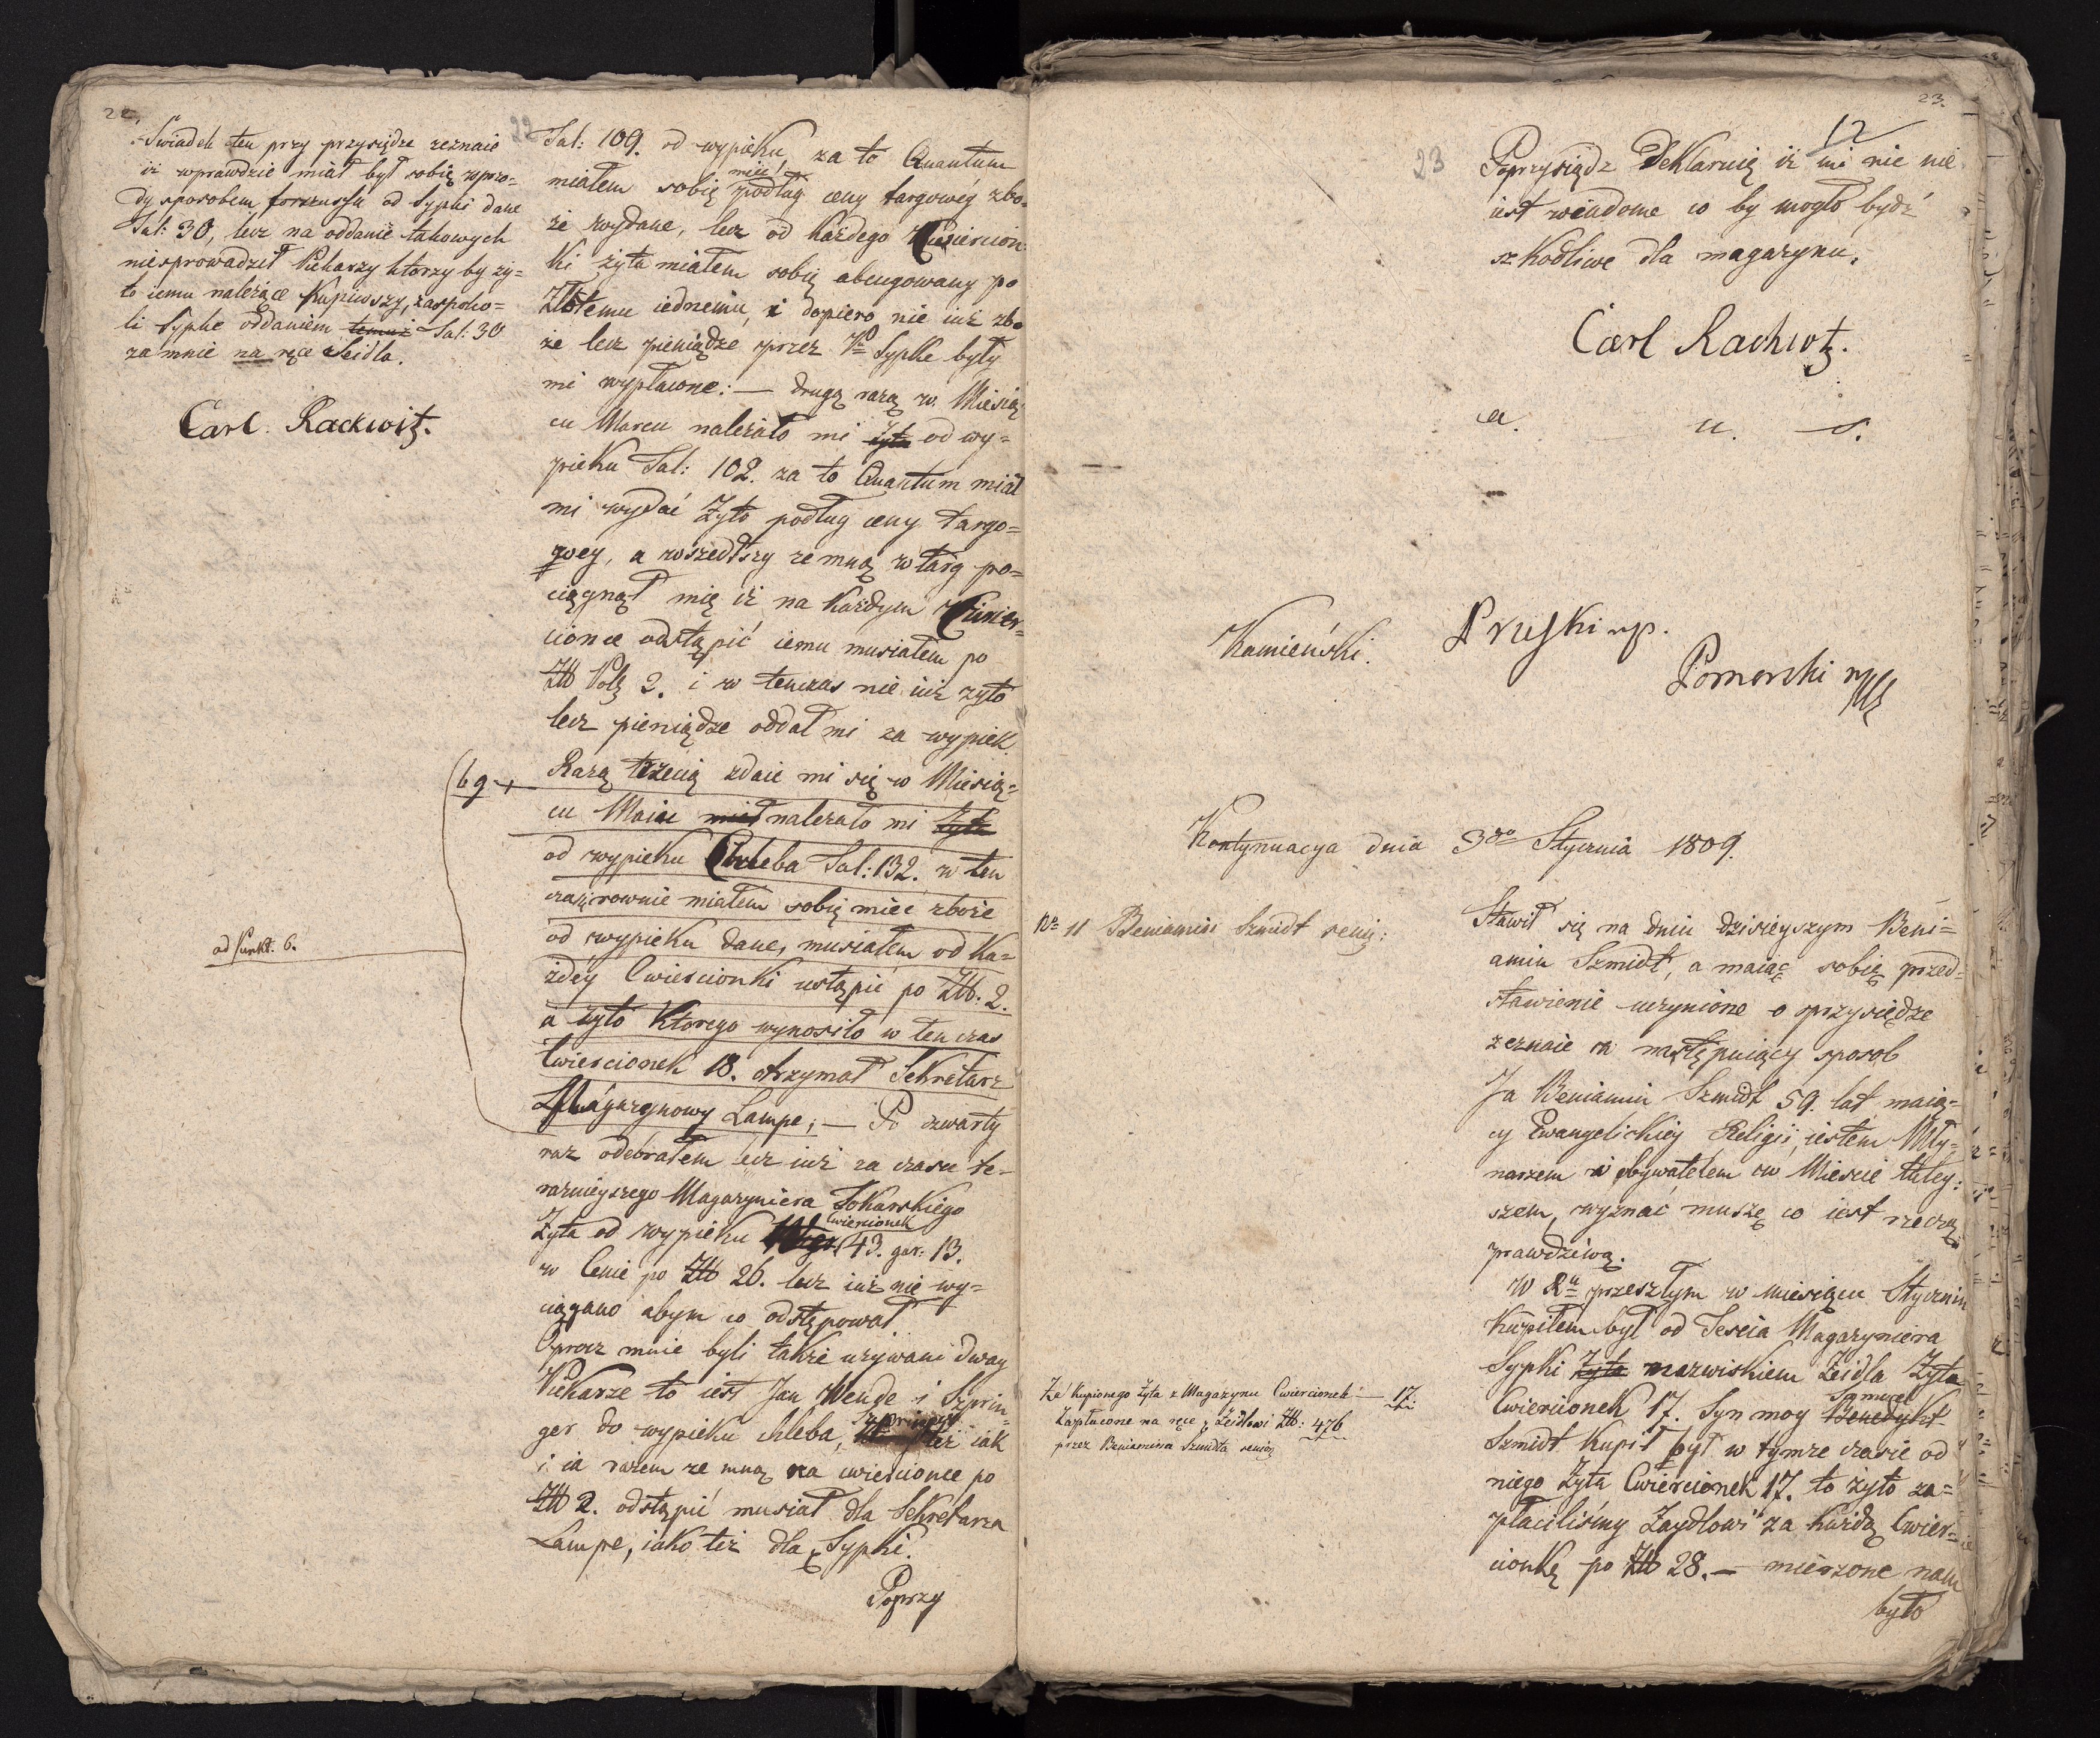 22.
22
Swiadek ten przy przysiędze zeznaie
iż wprawdzie miał był sobię wpro=
dy sposobem forszusu od Sypki dane
Tal: 30, lecz na oddanie takowych
niesprowadził Piekarzy ktorzy by ży=
to iemu należące kupiwszy, zaspoko=
li Sypke oddaniem temuż Tal: 30
za mnie na ręce Seidla.
Carl Rackwitz.
od Punkt: 6.
Tal: 109. od wypieku, za to Quantum
miałem sobię mieć podług ceny targowey zbo=
że wydane, lecz od każdego Cwiercion=
ki żyta miałem sobię abcugowany po
Złotemu iednemu, i dopiero nie iuż zbo
że lecz pieniądze przez P. Sypke były
mi wypłacone: — drugą razą w Miesią
cu Marcu należało mi żyta od wy=
pieku Tal: 102. za to Quantum miał
mi wydać Zyto podług ceny targo=
wey, a wszedłszy ze mną w targ po=
ciągnął mię iż na każdym Cwier=
cionce odstąpić iemu musiałem po
Zł Pol 2. i w tenczas nie iuż zyto
lecz pieniądze oddał mi za wypiek.
Razą trzecią zdaie mi się w Miesią=
cu Maiu miał należało mi żyta
od wypieku Chleba Tal: 132. w ten
czas rownie miałem sobię miec zboże
od wypieku dane, musiałem od Ka=
żdey Cwiercionki ustąpić po Zł. 2.
a żyto ktorego wynosiło w ten czas
Cwiercionek 18. otrzymał Sekretarz
Magazynowy Lampe; — Po czwarty
raz odebrałem lecz iuż za czasu te=
razniejszego Magazyniera Tokarskiego
Zyta od wypieku Cwiercionek 43. gar: 13.
w Cenie po Zł 26. lecz iuż nie wy=
ciągano abym co odstępował
Oprocz mnie byli także używani dway
Piekarze to iest Jan Wende i Szprin=
ger do wypieku chleba, Szpringer też iak
i ia razem ze mną na cwiercionce po
Zł 2. odstąpić musiał dla Sekretarza
Lampe, iako też dla Sypki.
Poprzy
23.
12
23
Poprzysiądz Deklaruię iż mi nic nie
iest wiadome co by mogło bydź
szkodliwe dla magazynu.
Carl Rackwitz.
a. u. s.
Kamieński.
Pruski mp.
Pomorski mp
Kontynuacya dnia 3go Stycznia 1809.
Nro 11 Beniamin Szmidt senio:
Stawił się na dniu dzisieyszym Beni=
amin Szmidt, a maiąc sobię przed=
stawienie uczynione o przysiędze
zeznaie w następuiący sposob
Ja Beniamin Szmidt 59. lat maią=
cy Ewangelickiey Religii, iestem Mły=
narzem i obywatelem w Miescie tutey=
szem, wyznać muszę co iest rzeczą
prawdziwą.
W Ru przeszłym w miesiącu Styczniu
kupiłem był od Tescia Magazyniera
Sypki żyta nazwiskiem Zeidla Zyta
Cwiercionek 17. Syn moy Benedykt Samuel
Szmidt kupił był w tymże czasie od
niego Zyta Cwiercionek 17. to żyto za=
płacilismy Zaydlowi za każdą Cwier=
cionkę po Zł 28. — mierzone nam
było
Za kupionego Zyta z Magazynu Cwiercionek — 17.
Zapłacone na ręce Zeidlowi Zł: 476
przez Beniamina Szmidta senio: